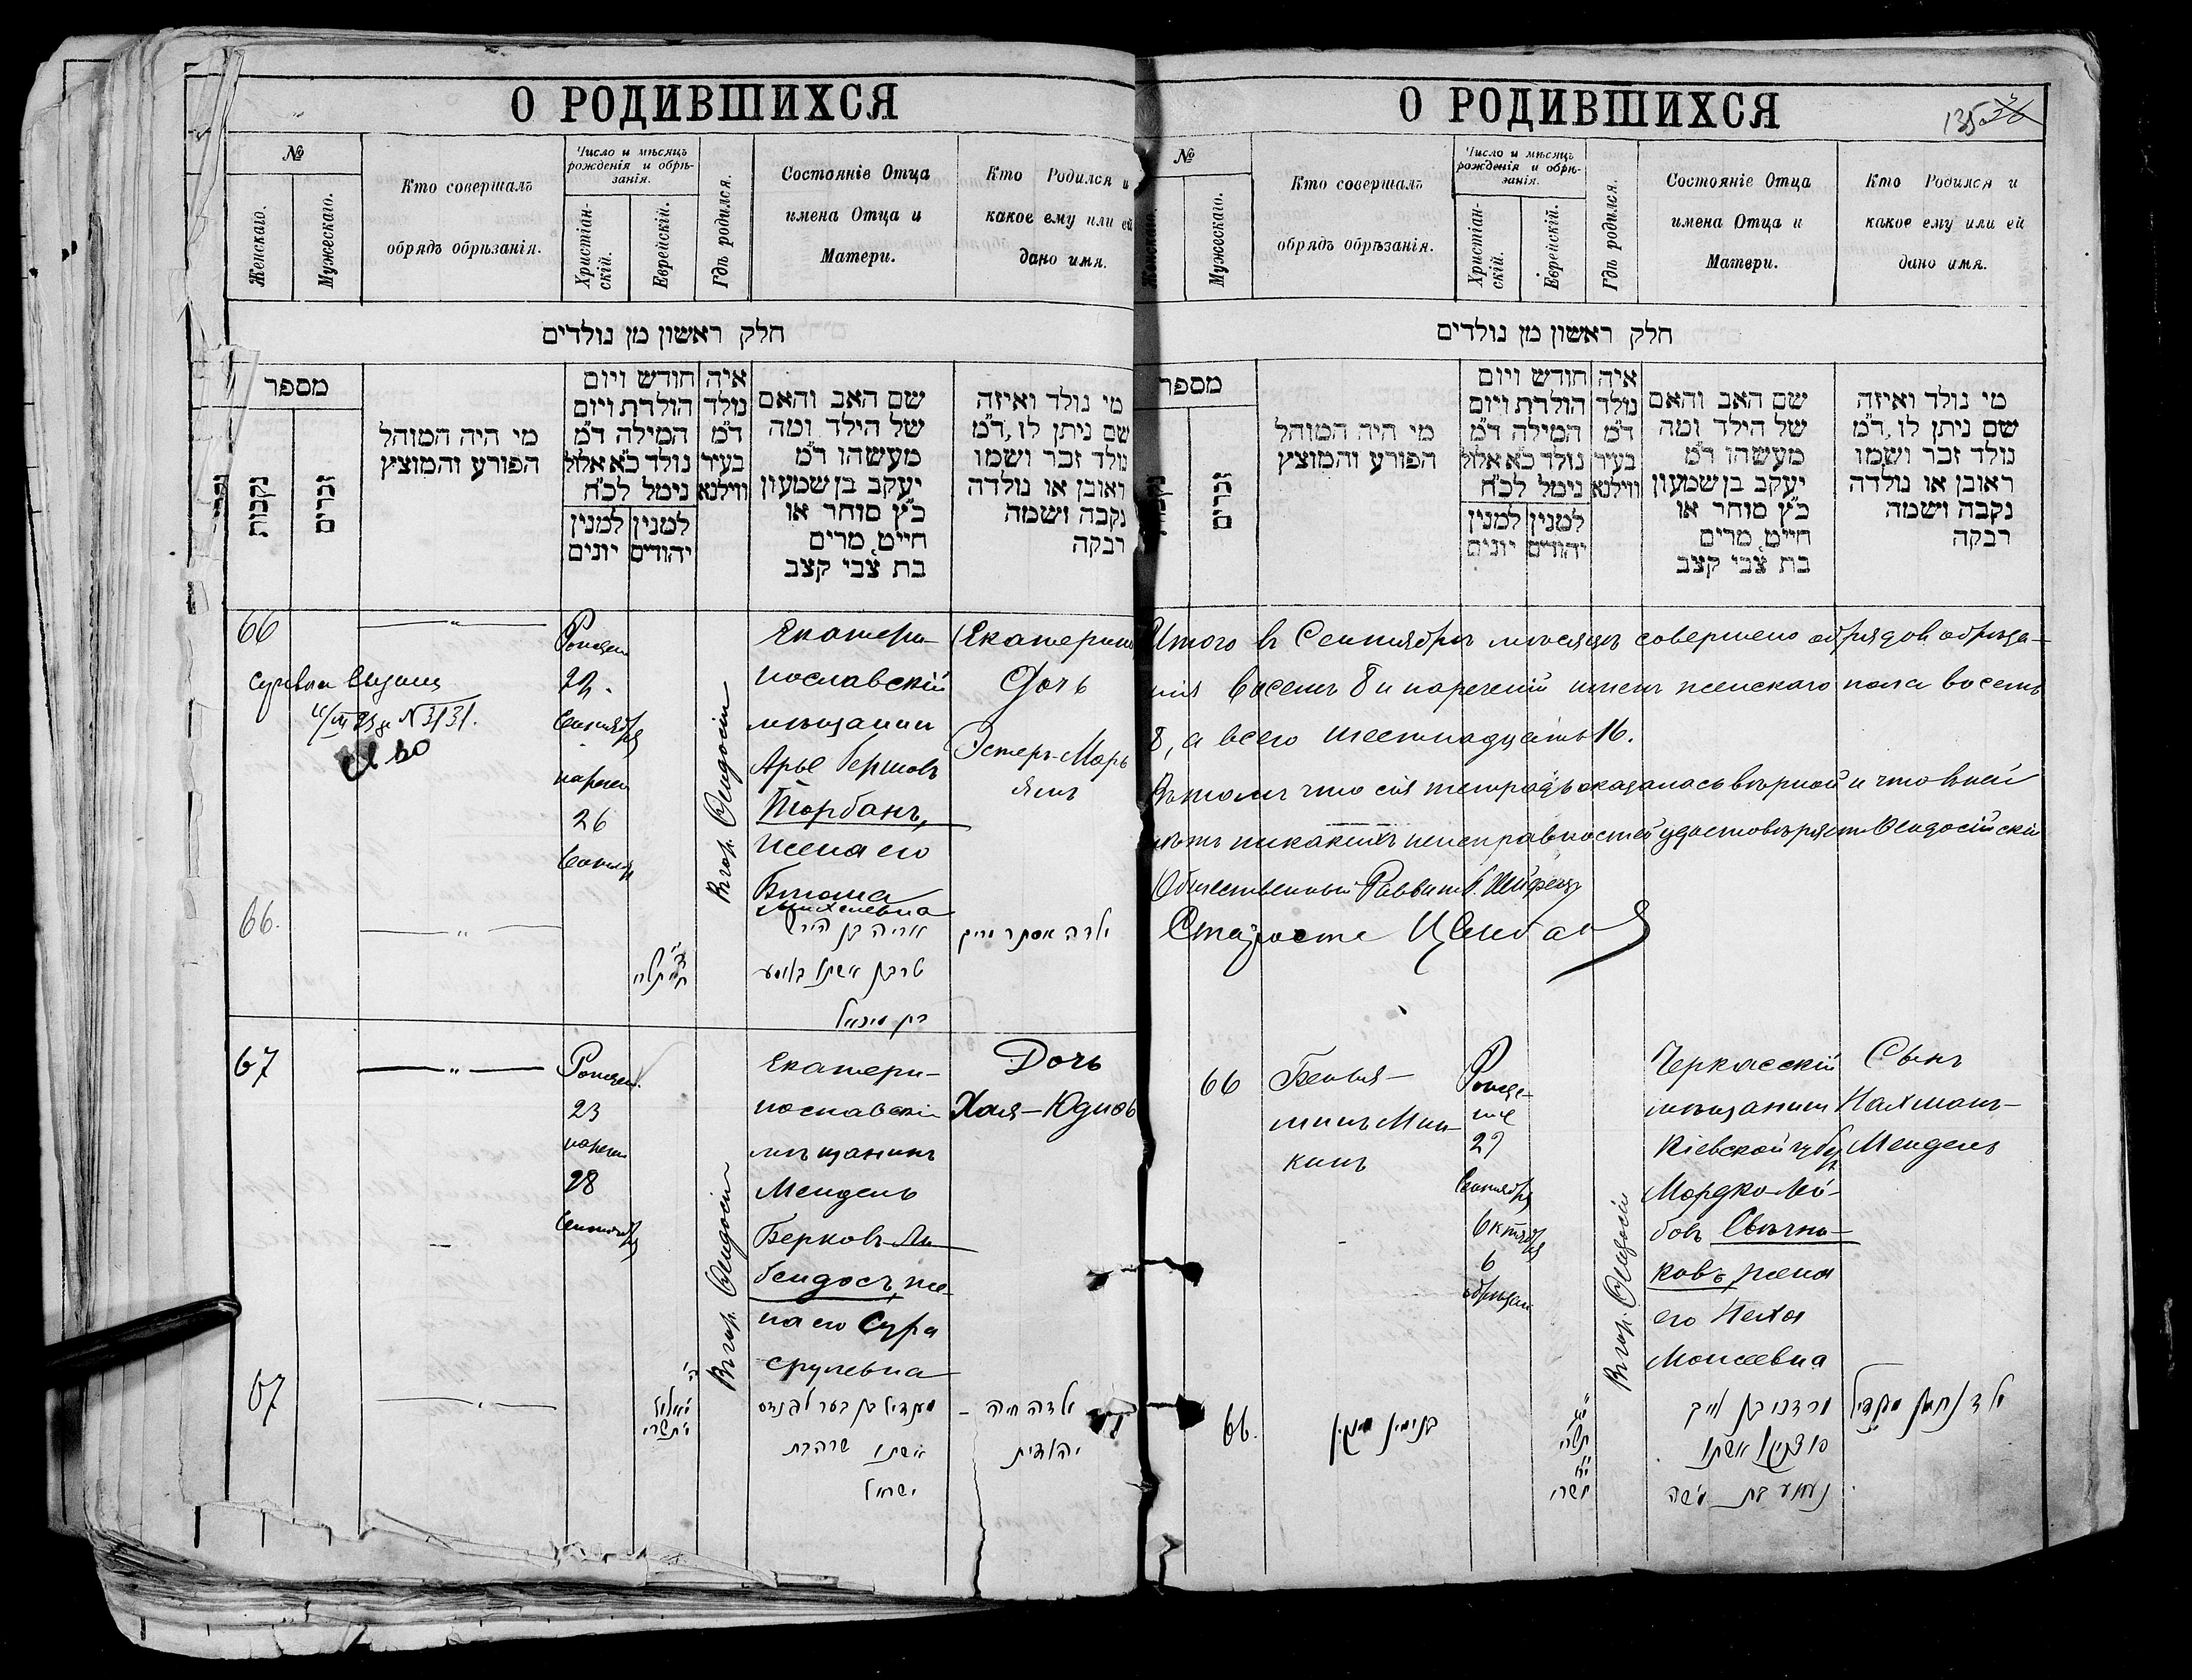 О РОДИВШИХСЯ
№
Женскаго.
Мужескаго.
Кто совершалъ
обрядъ обрѣзанія.
Число и мѣсяцъ
рожденія и обрѣ-
занія.
Христіан-
скій.
Еврейскій.
Гдѣ родился.
Состояніе Отца
имена Отца и
Матери.
Кто Родился и
какое ему или ей
дано имя.
חלק ראשון מן נולדים
מספר
נקבות
זכרים
מי היה המוהל
הפורע והמוצץ
חודש ויום
הולדת ויום
המילה ד"מ
נולד כ"א אלול
נימל לכ"ח
למנין למנין
יהודים יונים
איה
נולד
ד"מ
בעיר
ווילנא
שם האב והאם
של הילד ומה
מעשהו ד"מ
יעקב בן שמעון
כ"ץ סוחר או
חייט מרים
בת צבי קצב
מי נולד ואיזה
שם ניתן לו ד"מ
נולד זכר ושמו
ראובן או נולדה
נקבה ושמה
רבקה
66
№ 3131.
Сентября
26
Въ гор. Ѳеодосіи
Екатери-
нославскій
мѣщанинъ
Арье Гершовъ
Торбанъ,
жена его
Михелевна
Дочь
Эстеръ-Марь
66.
אריה בן הירש
ילדה אסתר
67
23
28
Сентября
Въ гор. Ѳеодосіи
Екатери-
нославскій
мѣщанинъ
Мендель
Берковъ Ли-
бендосъ, же-
на его Сура
Срулевна
Дочь
Хая-Юдиѳь
67
ילדה חיה
יהודית
אשתו שרה בת
ישראל
О РОДИВШИХСЯ
135
№
Женскаго.
Мужескаго.
Кто совершалъ
обрядъ обрѣзанія.
Число и мѣсяцъ
рожденія и обрѣ-
занія.
Христіан-
скій.
Еврейскій.
Гдѣ родился.
Состояніе Отца
имена Отца и
Матери.
Кто Родился и
какое ему или ей
дано имя.
חלק ראשון מן נולדים
מספר
נקבות
זכרים
מי היה המוהל
הפורע והמוצץ
חודש ויום
הולדת ויום
המילה ד"מ
נולד כ"א אלול
נימל לכ"ח
למנין למנין
יהודים יונים
איה
נולד
ד"מ
בעיר
ווילנא
שם האב והאם
של הילד ומה
מעשהו ד"מ
יעקב בן שמעון
כ"ץ סוחר או
חייט מרים
בת צבי קצב
מי נולד ואיזה
שם ניתן לו ד"מ
נולד זכר ושמו
ראובן או נולדה
נקבה ושמה
רבקה
Итого въ Сентябрѣ мѣсяцѣ совершено обрядовъ обрѣза-
нія восемь 8 и нареченій именъ женскаго пола восемь
8, а всего шестнадцать 16.
Въ томъ что сія тетрадь оказалась вѣрной и что въ ней
нѣтъ никакихъ неисправностей удостовѣряетъ Ѳеодосійскій
Общественный Раввинъ
Староста
66
Беніа-
минъ Мин-
кинъ
Рожде-
ніе
29
Сентября
Октября
6
обрѣзан
Въ гор. Ѳеодосіи
Черкасскій
мѣщанинъ
Кіевской губ.
Мордко Лей-
бовъ Свѣчни-
ковъ, жена
его Неха
Моисеевна
Сынъ
Нахманъ-
Мендель
66.
בנימין מינקין
תשרי
תשרי
מרדכי בן לייב
אשתו
נעחע בת משה
ילד נחמן מענדיל